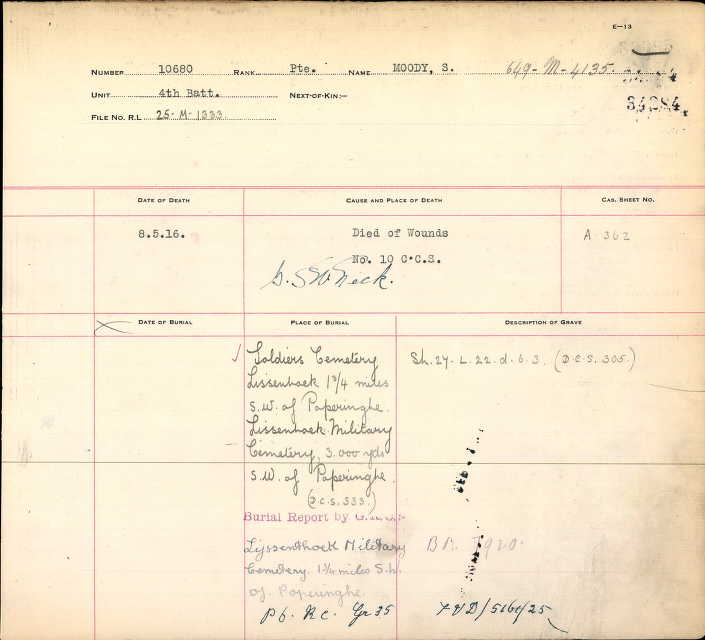 E—13
NUMBER 10680 RANK Pte. NAME MOODY, S. 649-M-4135.
UNIT 4th Batt. NEXT-OF-KIN:—
FILE NO. R.L. 25-M-1333
DATE OF DEATH CAUSE AND PLACE OF DEATH CAS. SHEET NO.
8.5.16. Died of Wounds A 362
No. 10 C.C.S.
G.S.W. Neck.
DATE OF BURIAL PLACE OF BURIAL DESCRIPTION OF GRAVE
Soldiers Cemetery Sh. 27. L. 22. d. 6. 3. (D.C.S. 305.)
Lissenhoek 1 3/4 miles
S.W. of Poperinghe.
Lissenhoek Military
Cemetery, 3.000 yds
S.W. of Poperinghe.
(D.C.S. 333.)
Burial Report by
Lijssenthoek Military B.R. 1920.
Cemetery. 1¾ miles S.W.
of Poperinghe.
Pl. 6. R.C. Gr 35